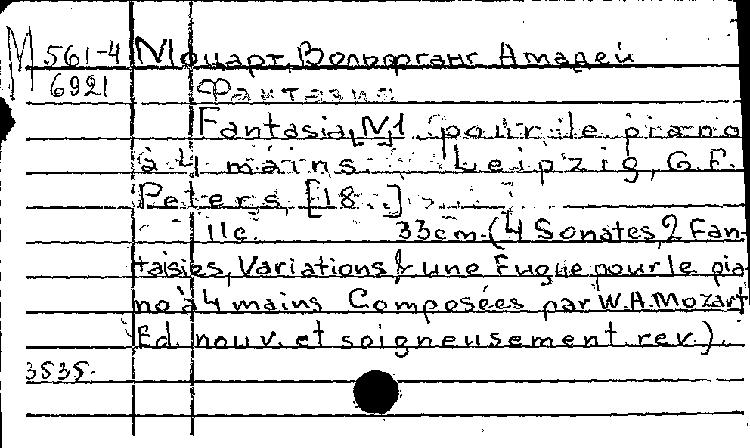 М 561-4 Моцарт, Вольфганг Амадей
6921 Фантазия
Fantasia, N1 pour le piano
à 4 mains. Leipzig, G.F.
Peters, [18..]
11c. 33cm. (4 Sonates, 2 Fan-
taisies, Variations & une Fugue pour le pia-
no à 4 mains Composées par W.A. Mozart
Ed. nouv. et soigneusement rev.).
3535.